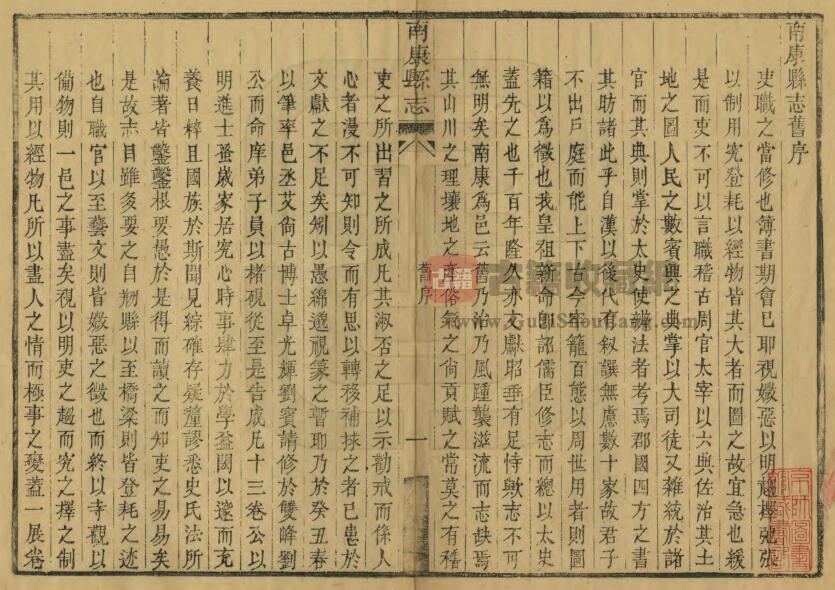 南康縣志舊序
吏職之當修也簿書期會已耶視媺惡以明趨擇弛張
以制用究登耗以經物皆其大者而圖之故宜急也緩
是而吏不可以言職稽古周官太宰以六典佐治其土
地之圖人民之數賓興之典掌以大司徒又雜統於諸
官而其典則掌於太史使辨法者考焉郡國四方之書
其昉諸此乎自漢以後代有叙譔無慮數十家故君子
不出戶庭而能上下古今牢籠百態以周世用者則圖
籍以爲徵也我皇祖新命即詔儒臣修志而總以太史
蓋先之也千百年隆久亦文獻昭垂有足恃歟志不可
無明矣南康爲邑云舊乃治乃風踵襲滋流而志缺焉
其山川之理壤地之俗氣之尙貢賦之常莫之有稽
南康縣志
舊序
一
吏之所出習之所成凡其淑否之足以示勸戒而係人
心者漫不可知則令而有思以轉移補捄之者已患於
文獻之不足矣矧以愚綿邈視篆之暫耶乃於癸丑春
以筆率邑丞艾尙古博士卓光輝劉賓請修於雙峰劉
公而命庠弟子員以楮硯從至是告成凡十三卷公以
明進士蚤歲家居究心時事肆力於學益閎以邃而充
養日粹且國族於斯聞見綜確存疑釐謬悉史氏法所
論著皆鑿鑿根要愚於是得而讀之而知吏之易易矣
是故志目雖多要之自剏縣以至橋梁則皆登耗之迹
也自職官以至藝文則皆媺惡之徵也而終以寺觀以
備物則一邑之事盡矣視以明吏之趨而究之擇之制
其用以經物凡所以盡人之情而極事之變蓋一展卷
古籍
古籍收藏網
www.GuJiShouCang.com